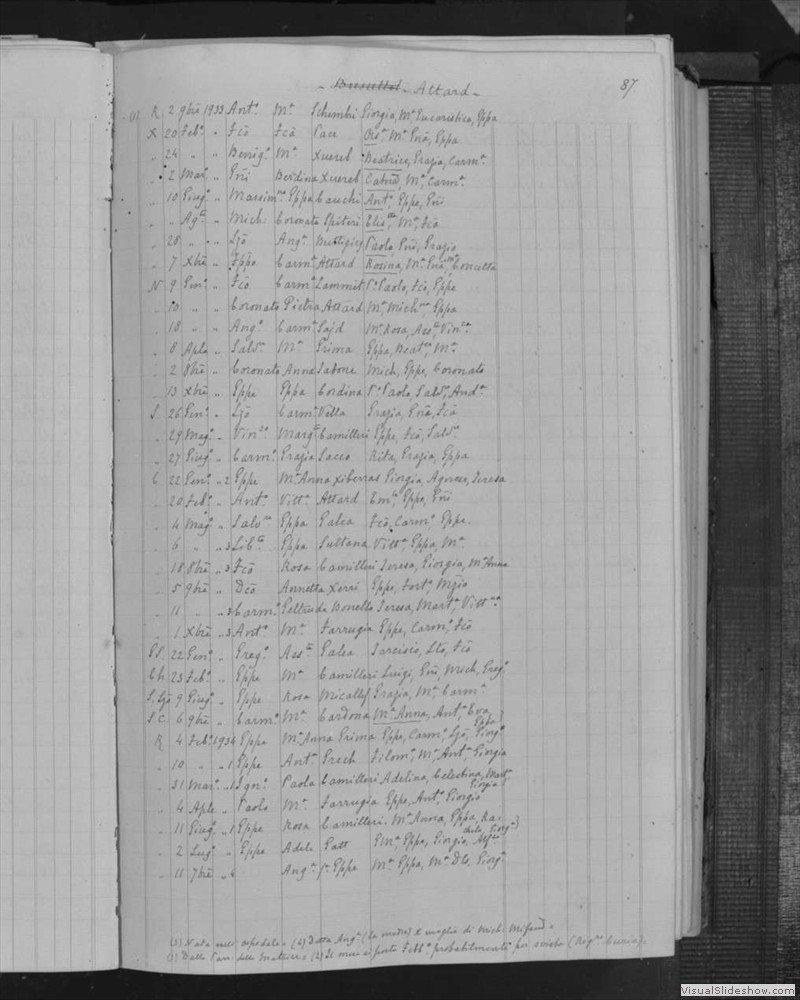 - Busuttil - Attard -
87
(1) R 2 9bre 1933 Ant.o M.a Schembri Giorgia, M.a Eucaristica, Eppa
X 20 Feb.o " Fco Fca Pace M.a Gna, Eppa
" 24 " " Benig.o M.a Xuereb Beatrice, Grazia, Carm.a
" 2 Mar.o " Gni Berdina Xuereb Catna, M.a Carm.a
" 10 Giug.o " Massim.no Eppa Cauchi Ant.o, Eppe, Gni
" Ag.to " Mich: Coronata Spiteri M.a, Fca
" 28 " " Ljo Ang.a Buttigieg Paolo, Gni, Grazio
" 7 Xbre " Eppe Carm.a Attard Rosina, M.a Concetta
N 9 Gen.o " Fco Carm.a Zammit P.o Paolo, Fco, Eppe
" 10 " " Coronato Pietra Attard M.a Eppa
" 18 " " Ang.o Carm.a Sajd M.a Rosa, Ass.ta Vin.za
" 8 Aple " Salv.re M.a Grima Eppa, Beat.ce, M.a
" 2 8bre " Coronato Anna Sabone Mich, Eppe, Coronato
" 13 Xbre " Eppe Eppa Cordina P.o Paolo, Salv.e, And.a
S. 26 Gen.o " Ljo Carm.a Vella Grazia, Gna, Fca
" 29 Mag.o " Vin.zo Marg.ta Camilleri Eppe, Fco, Salv.e
" 27 Giug.o " Carm.o Grazia Sacco Rita, Grazia, Eppa
C 22 Gen.o " 2 Eppe M.a Anna Xiberras Giorgia, Agnese, Teresa
" 20 Feb.o " Ant.o Vitt.a Attard Em.le, Eppe, Gni
" 4 Mag.o " Salv.re Eppa Galea Fco, Carm.o Eppe.
" 6 " " 3 Lib.to Eppa Sultana Vitt.a, Eppa, M.a
" 18 8bre " 3 Fco Rosa Camilleri Teresa, Giorgia, M.a Anna
" 5 9bre " Dco Annetta Xerri Eppe, Fort.o
" 11 " " 3 Carm.o Geltruda Bonello Teresa, Mart.a, Vitt.na
" 1 Xbre " 3 Ant.o M.a Farrugia Eppe, Carm.o, Fco
22 Gen.o " Greg.o Ass.ta Galea Tarcisio, Fco
Ch. 23 Feb.o " Eppe M.a Camilleri Luigi, Gni, Mich, Greg.o
S. Ljo 9 Giug.o " Eppe Rosa Micallef Grazia, M.a Carm.a
S.C. 6 9bre " Carm.o M.a Cardona M.a Anna, Ant.a Eva, Eppa
R 4 Feb.o 1934 Eppe M.a Anna Grima Eppe, Carm.o, Ljo, Giorg.o
" 10 " " 1 Eppe Ant.a Grech Filom.a, M.a Ant.a Giorgia
" 31 Mar.o " 1 Ign.o Paola Camilleri Adelina, Celestina, Mart.a Giorgia
" 4 Aple " Paolo M.a Farrugia Eppe, Ant.o, Giorgio
" 11 Giug.o " 1 Eppe Rosa Camilleri M.a Anna, Eppa,
" 2 Lug.o " Eppe Adele Gatt Eppa, Giorgia,
" 11 7bre " 4 Ang.a M.a Eppa, M.a Giorg.a
(3) Nata nell'ospedale. (4) Detta Ang.a (la madre) è moglie di Mich. Mifsud.
(1) Dalla Parr. della Matrice. (2) Il mese si porta Febb.o probabilmente per svista (Reg.ro Curia).
VisualSlideshow.com